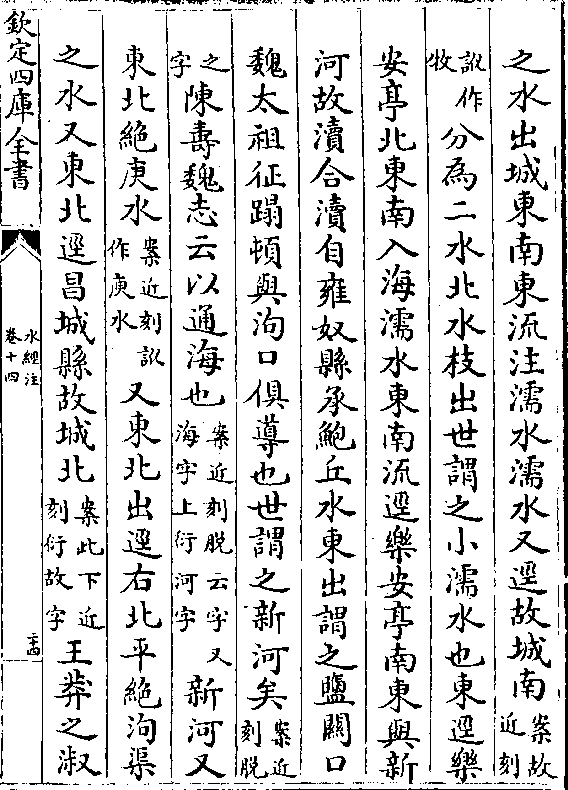 之水出城東南東流注濡水濡水又逕故城南案故近刻
訛作牧分為二水北水枝出世謂之小濡水也東逕樂
安亭北東南入海濡水東南流逕樂安亭南東與新
河故瀆合瀆自雍奴縣承鮑丘水東出謂之鹽關口
魏太祖征蹋頓與泃口俱導也世謂之新河矣案近刻脫
之字陳壽魏志云以通海也案近刻脫云字又海字上衍河字新河又
東北絕庚水案近刻訛作庾水又東北出逕右北平絕泃渠
之水又東北逕昌城縣故城北案此下近刻衍故字王莽之淑
欽定四庫全書
水經注
卷十四
二十四